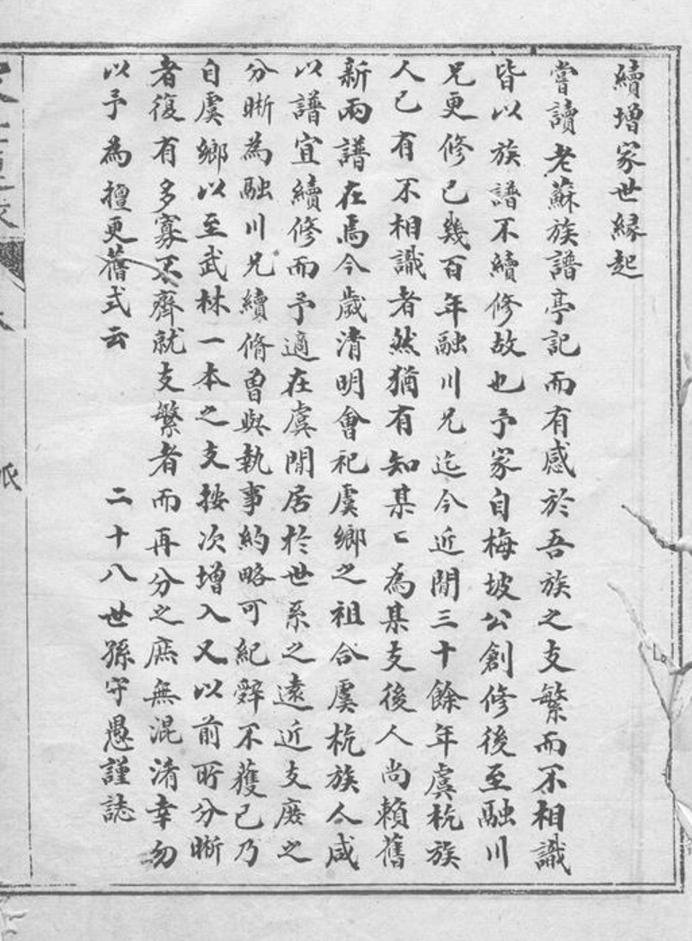 續增家世緣起
嘗讀老蘇族譜亭記而有感於吾族之支繁而不相識
皆以族譜不續修故也予家自梅坡公創修後至融川
兄更修已幾百年融川兄迄今近閒三十餘年虞杭族
人已有不相識者然猶有知某〻為某支後人尚賴舊
新兩譜在焉今歲清明會祀虞鄉之祖合虞杭族人咸
以譜宜續修而予適在虞閒居於世系之遠近支庶之
分晰為融川兄續脩曾與執事約略可紀辭不獲已乃
自虞鄉以至武林一本之支按次增入又以前所分晰
者復有多寡不齊就支繁者而再分之庶無混淆幸勿
以予為擅更舊式云
二十八世孫守愚謹誌
派